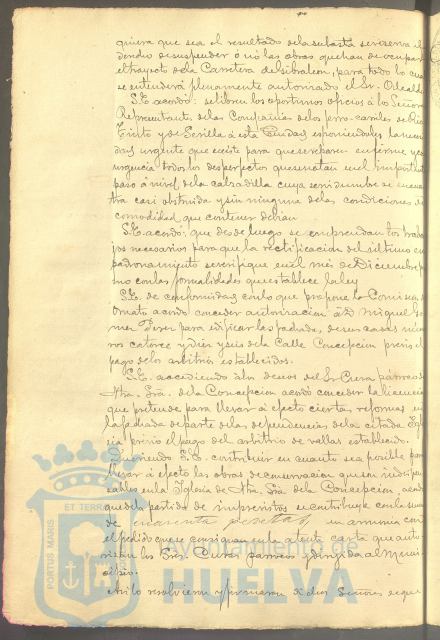 quiera que sea el resultado de la subasta se reserva el
derecho de suspender ó no las obras que han de ocupar
el trayecto de la Carretera de Gibraleon, para todo lo cual
se entenderá plenamente autorizado el Sr. Alcalde
S.E. acordó: se libren los oportunos oficios á los Señores
Representantes de las Compañias de los ferro-carriles de Rio
Tinto y de Sevilla á esta Ciudad, esponiendoles la
urgente que existe para que se reparen
urgencia todos los desperfectos que se notan en el importante
paso á nivel de la calzadilla cuya servidumbre se encuen
tra casi obstruida y sin ninguna de las condiciones de
comodidad que contener debian
S.E. acordó: que desde luego se emprendan los traba
jos necesarios para que la rectificacion del último em
padronamiento se verifique en el mes de Diciembre pró
mo con las formalidades que establece la ley
S.E. de conformidad con lo que propone la Comision de
Ornato acordó conceder autorizacion á D. Miguel
Perez para edificar las fachadas de sus casas núme
ros catorce y diez y seis de la Calle Concepcion previo el
pago de los arbitrios establecidos.
S.E. accediendo á los deseos del Sr. Cura párroco de
Ntra. Sra. de la Concepcion acordó conceder la licencia
que pretende para llevar á efecto ciertas reformas en
la fachada de parte de las dependencias de la citada Igle
sia previo el pago del arbitrio de vallas establecido.
Queriendo S.E. contribuir en cuanto sea posible para
llevar á efecto las obras de conservacion que son indispen
sables en la Iglesia de Ntra. Sra. de la Concepcion, acordó
que de la partida de imprevistos se contribuya con la suma
de cuarenta pesetas en armonia con
el pedido que se consigna en la atenta carta que auto
rizan los Sres. Curas párrocos y dirigida al Muni
cipio.
Así lo resolvieron y firmaron dichos Señores de que
PORTUS MARIS
ET TERRÆ
Ayuntamiento de
HUELVA